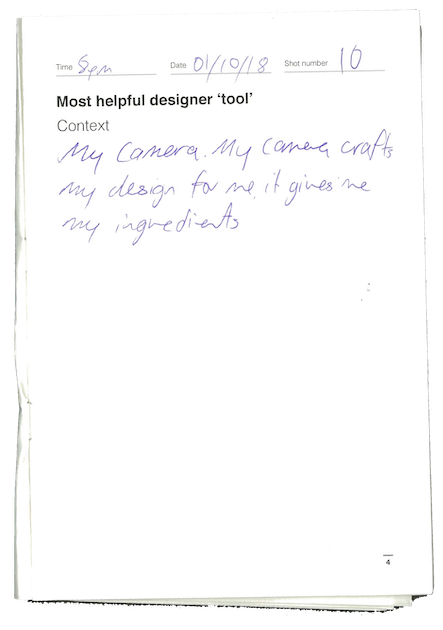 Time 8pm Date 01/10/18 Shot number 10
Most helpful designer 'tool'
Context
My Camera. My Camera crafts
my design for me, it gives me
my ingredients
4